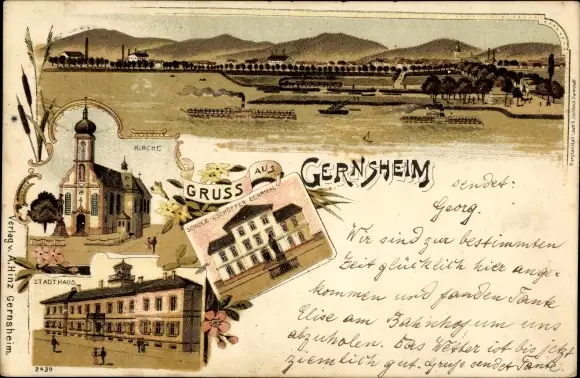 KIRCHE
GRUSS AUS
GERNSHEIM
SCHULE u. SCHÖFFER DENKMAL
STADTHAUS
Verlag v. A. Hinz Gernsheim.
2439
sendet:
Georg.
Wir sind zur bestimmten
Zeit glücklich hier ange-
kommen und fanden Tante
Elise am Bahnhof um uns
abzuholen. Das Wetter ist bis jetzt
ziemlich gut. Gruß sendet Tante.